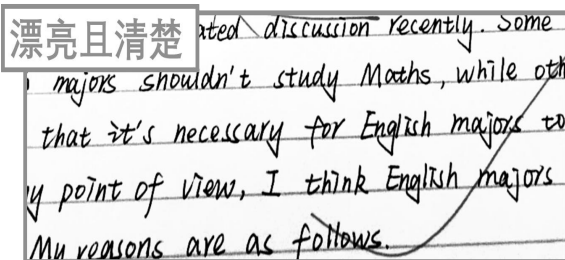 漂亮且清楚
ated discussion recently. Some
majors shouldn't study Maths, while oth
that it's necessary for English majors to
y point of view, I think English majors
My reasons are as follows.